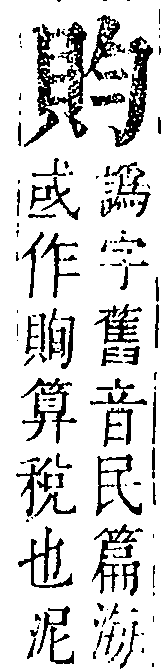 譌字舊音民篇海
或作算稅也泥